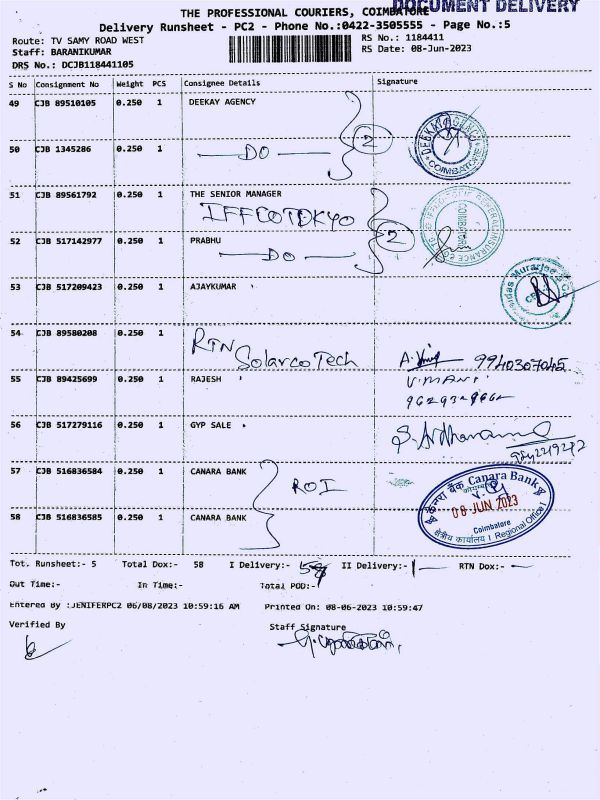 DOCUMENT DELIVERY
THE PROFESSIONAL COURIERS, COIMBATORE
Delivery Runsheet - PC2 - Phone No.:0422-3505555 - Page No.:5
Route: TV SAMY ROAD WEST
RS No.: 1184411
Staff: BARANIKUMAR
RS Date: 08-Jun-2023
DRS No.: DCJB118441105
S No Consignment No Weight PCS Consignee Details Signature
49 CJB 89510105 0.250 1 DEEKAY AGENCY
2
DEEKAY AGENCY COIMBATORE
50 CJB 1345286 0.250 1
DO
51 CJB 89561792 0.250 1 THE SENIOR MANAGER
IFFCO TOKYO
2
52 CJB 517142977 0.250 1 PRABHU
DO
53 CJB 517209423 0.250 1 AJAYKUMAR
54 CJB 89580208 0.250 1
RTN Solarco Tech
9940307045
55 CJB 89425699 0.250 1 RAJESH
V.MANI
56 CJB 517279116 0.250 1 GYP SALE
57 CJB 516836584 0.250 1 CANARA BANK
ROI
केनरा बैंक Canara Bank
08 JUN 2023
Coimbatore
क्षेत्रीय कार्यालय / Regional Office
58 CJB 516836585 0.250 1 CANARA BANK
Tot. Runsheet:- 5 Total Dox:- 58 I Delivery:- II Delivery:- RTN Dox:-
Out Time:- In Time:- Total POD:-
Entered By :JENIFERPC2 06/08/2023 10:59:16 AM Printed On: 08-06-2023 10:59:47
Verified By
Staff Signature